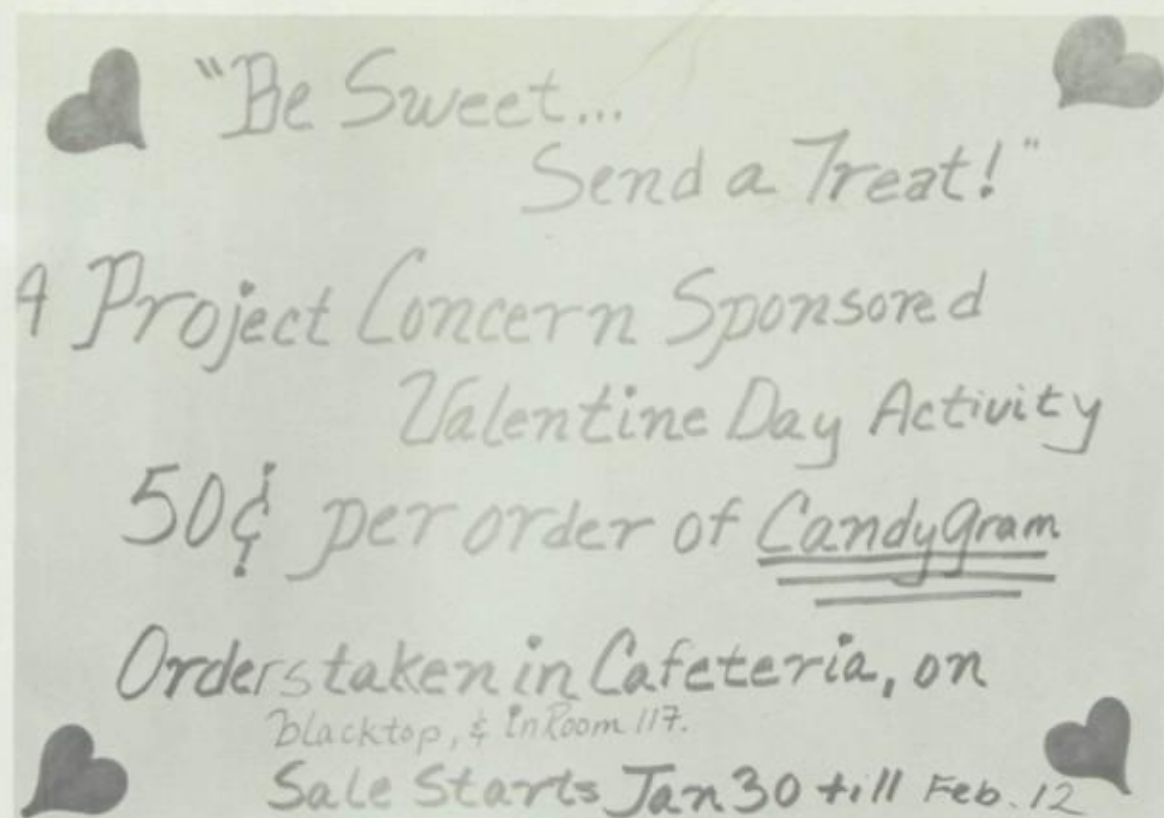 "Be Sweet...
Send a Treat!"
A Project Concern Sponsored
Valentine Day Activity
50¢ per order of CandyGram
Orders taken in Cafeteria, on
blacktop, & in Room 117.
Sale Starts Jan 30 till Feb. 12